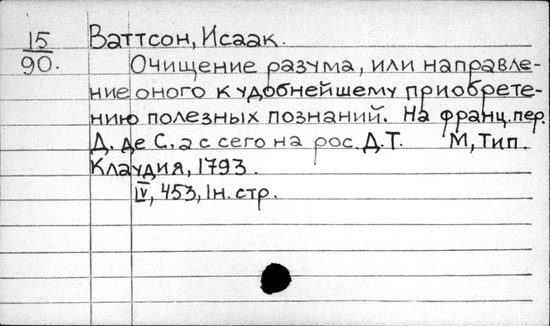 15 Ваттсон, Исаак.
90. Очищение разума, или направле-
ние оного к удобнейшему приобрете-
нию полезных познаний. На франц. пер.
Д. де С., а с сего на рос. Д.Т. М, Тип.
Клаудия, 1793.
IV, 453, 1н. стр.